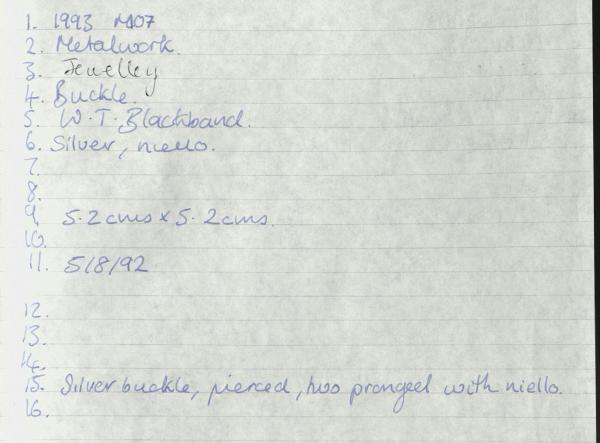 1. 1993 M107
2. Metalwork.
3. Jewelley
4. Buckle.
5. W.T. Blackband.
6. Silver, niello.
7.
8.
9. 5.2cms x 5.2cms.
10.
11. 5/8/92
12.
13.
14.
15. Silver buckle, pierced, two pronged with niello.
16.